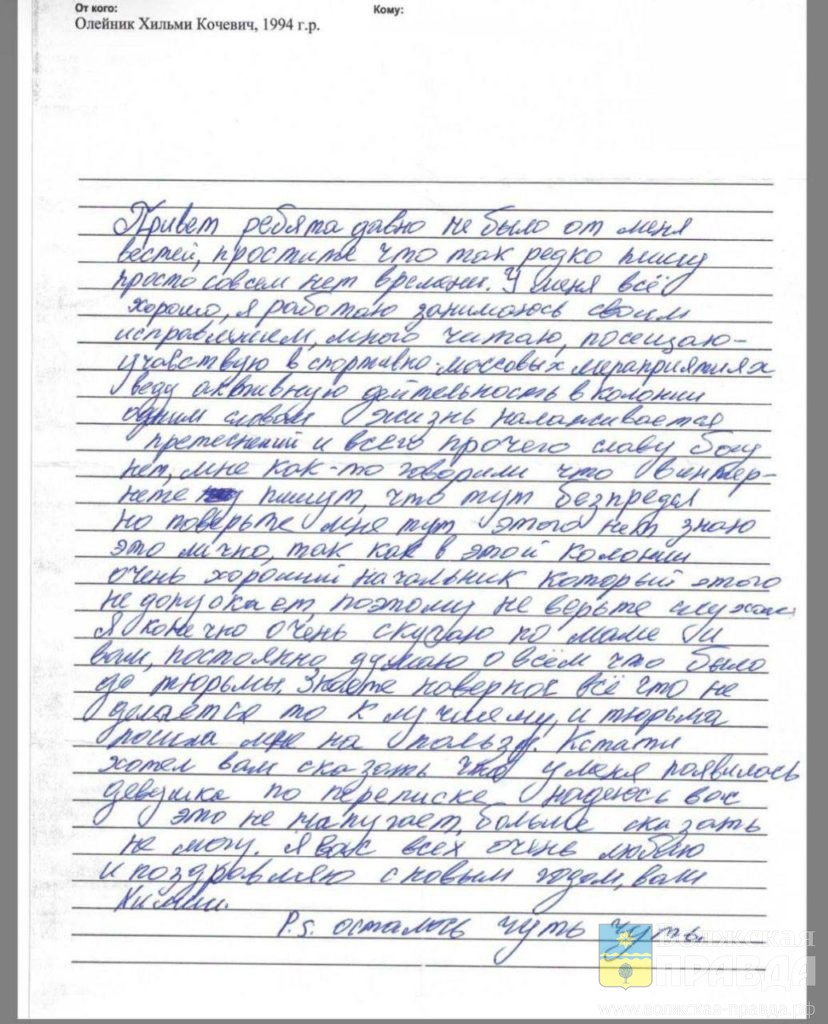 От кого:
Кому:
Олейник Хильми Кочевич, 1994 г.р.
Привет ребята давно не было от меня
вестей, простите что так редко пишу
просто совсем нет времени. У меня всё
хорошо, я работаю занимаюсь своим
исправлением, много читаю, посещаю-
учавствую в спортивно-массовых мераприятиях
веду активную деятельность в колонии
одним словам жизнь налаживается
претеснений и всего прочего славу богу
нет, мне как-то говорили что в интер-
нете пишут, что тут безпредел
но поверьте мне тут этого нет знаю
это лично, так как в этой колонии
очень хороший начальник который этого
не допускает, поэтому не верьте слухам.
Я конечно очень скучаю по маме и
вам, постоянно думаю о всём что было
до тюрьмы. Знаете наверное всё что не
делается то к лучшему, и тюрьма
пошла мне на пользу. Кстати
хотел вам сказать что у меня появилась
девушка по переписке надеюсь вас
это не напугает, больше сказать
не могу. Я вас всех очень люблю
и поздравляю с новым годом, ваш
Хильми.
P.s. осталось чуть чуть.
Волжская
ПРАВДА
www.волжская-правда.рф